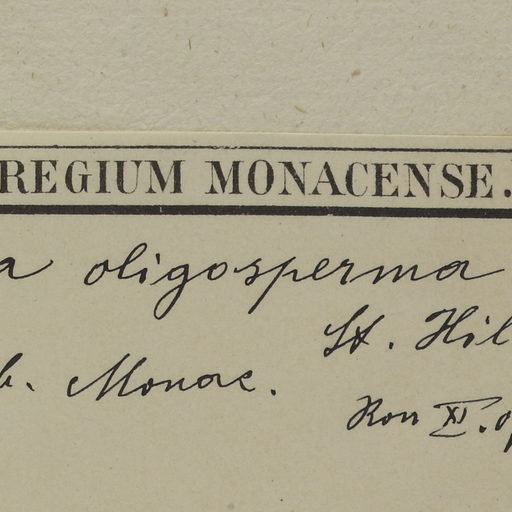 REGIUM MONACENSE.
a oligosperma
St. Hil
b. Monac.
Ron XI.